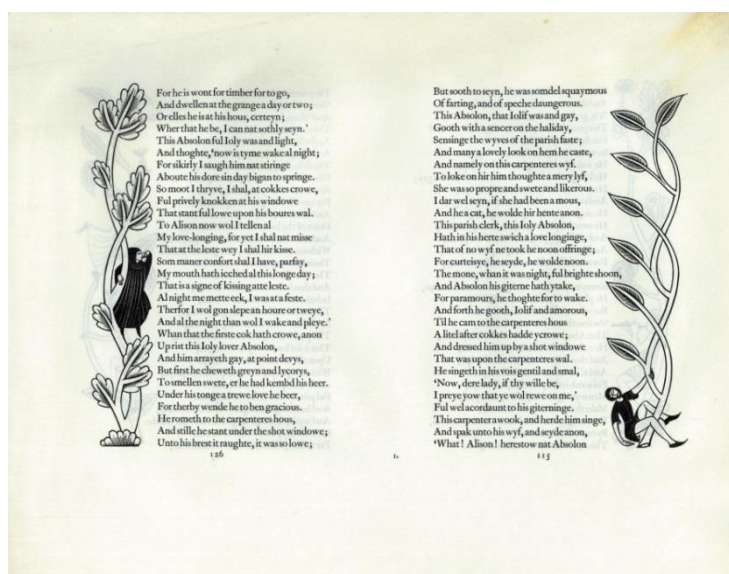 For he is wont for timber for to go,
And dwellen at the grange a day or two;
Or elles he is at his hous, certeyn;
Wher that he be, I can nat sothly seyn.'
This Absolon ful Ioly was and light,
And thoghte, 'now is tyme wake al night;
For sikirly I saugh him nat stiringe
Aboute his dore sin day bigan to springe.
So moot I thryve, I shal, at cokkes crowe,
Ful prively knokken at his windowe
That stant ful lowe upon his boures wal.
To Alison now wol I tellen al
My love-longing, for yet I shal nat misse
That at the leste wey I shal hir kisse.
Som maner confort shal I have, parfay,
My mouth hath icched al this longe day;
That is a signe of kissing atte leste.
Al night me mette eek, I was at a feste.
Therfor I wol gon slepe an houre or tweye,
And al the night than wol I wake and pleye.'
Whan that the firste cok hath crowe, anon
Up rist this Ioly lover Absolon,
And him arrayeth gay, at point devys,
But first he cheweth greyn and lycorys,
To smellen swete, er he had kembd his heer.
Under his tonge a trewe love he beer,
For therby wende he to ben gracious.
He rometh to the carpenteres hous,
And stille he stant under the shot windowe;
Unto his brest it raughte, it was so lowe;
126
But sooth to seyn, he was somdel squaymous
Of farting, and of speche daungerous.
This Absolon, that Iolif was and gay,
Gooth with a sencer on the haliday,
Sensinge the wyves of the parish faste;
And many a lovely look on hem he caste,
And namely on this carpenteres wyf.
To loke on hir him thoughte a mery lyf,
She was so propre and swete and likerous.
I dar wel seyn, if she had been a mous,
And he a cat, he wolde hir hente anon.
This parish clerk, this Ioly Absolon,
Hath in his herte swich a love longinge,
That of no wyf ne took he noon offringe;
For curteisye, he seyde, he wolde noon.
The mone, whan it was night, ful brighte shoon,
And Absolon his giterne hath ytake,
For paramours, he thoghte for to wake.
And forth he gooth, Iolif and amorous,
Til he cam to the carpenteres hous
A litel after cokkes hadde ycrowe;
And dressed him up by a shot windowe
That was upon the carpenteres wal.
He singeth in his vois gentil and smal,
'Now, dere lady, if thy wille be,
I preye yow that ye wol rewe on me,'
Ful wel acordaunt to his giterninge.
This carpenter awook, and herde him singe,
And spak unto his wyf, and seyde anon,
'What! Alison! herestow nat Absolon
115